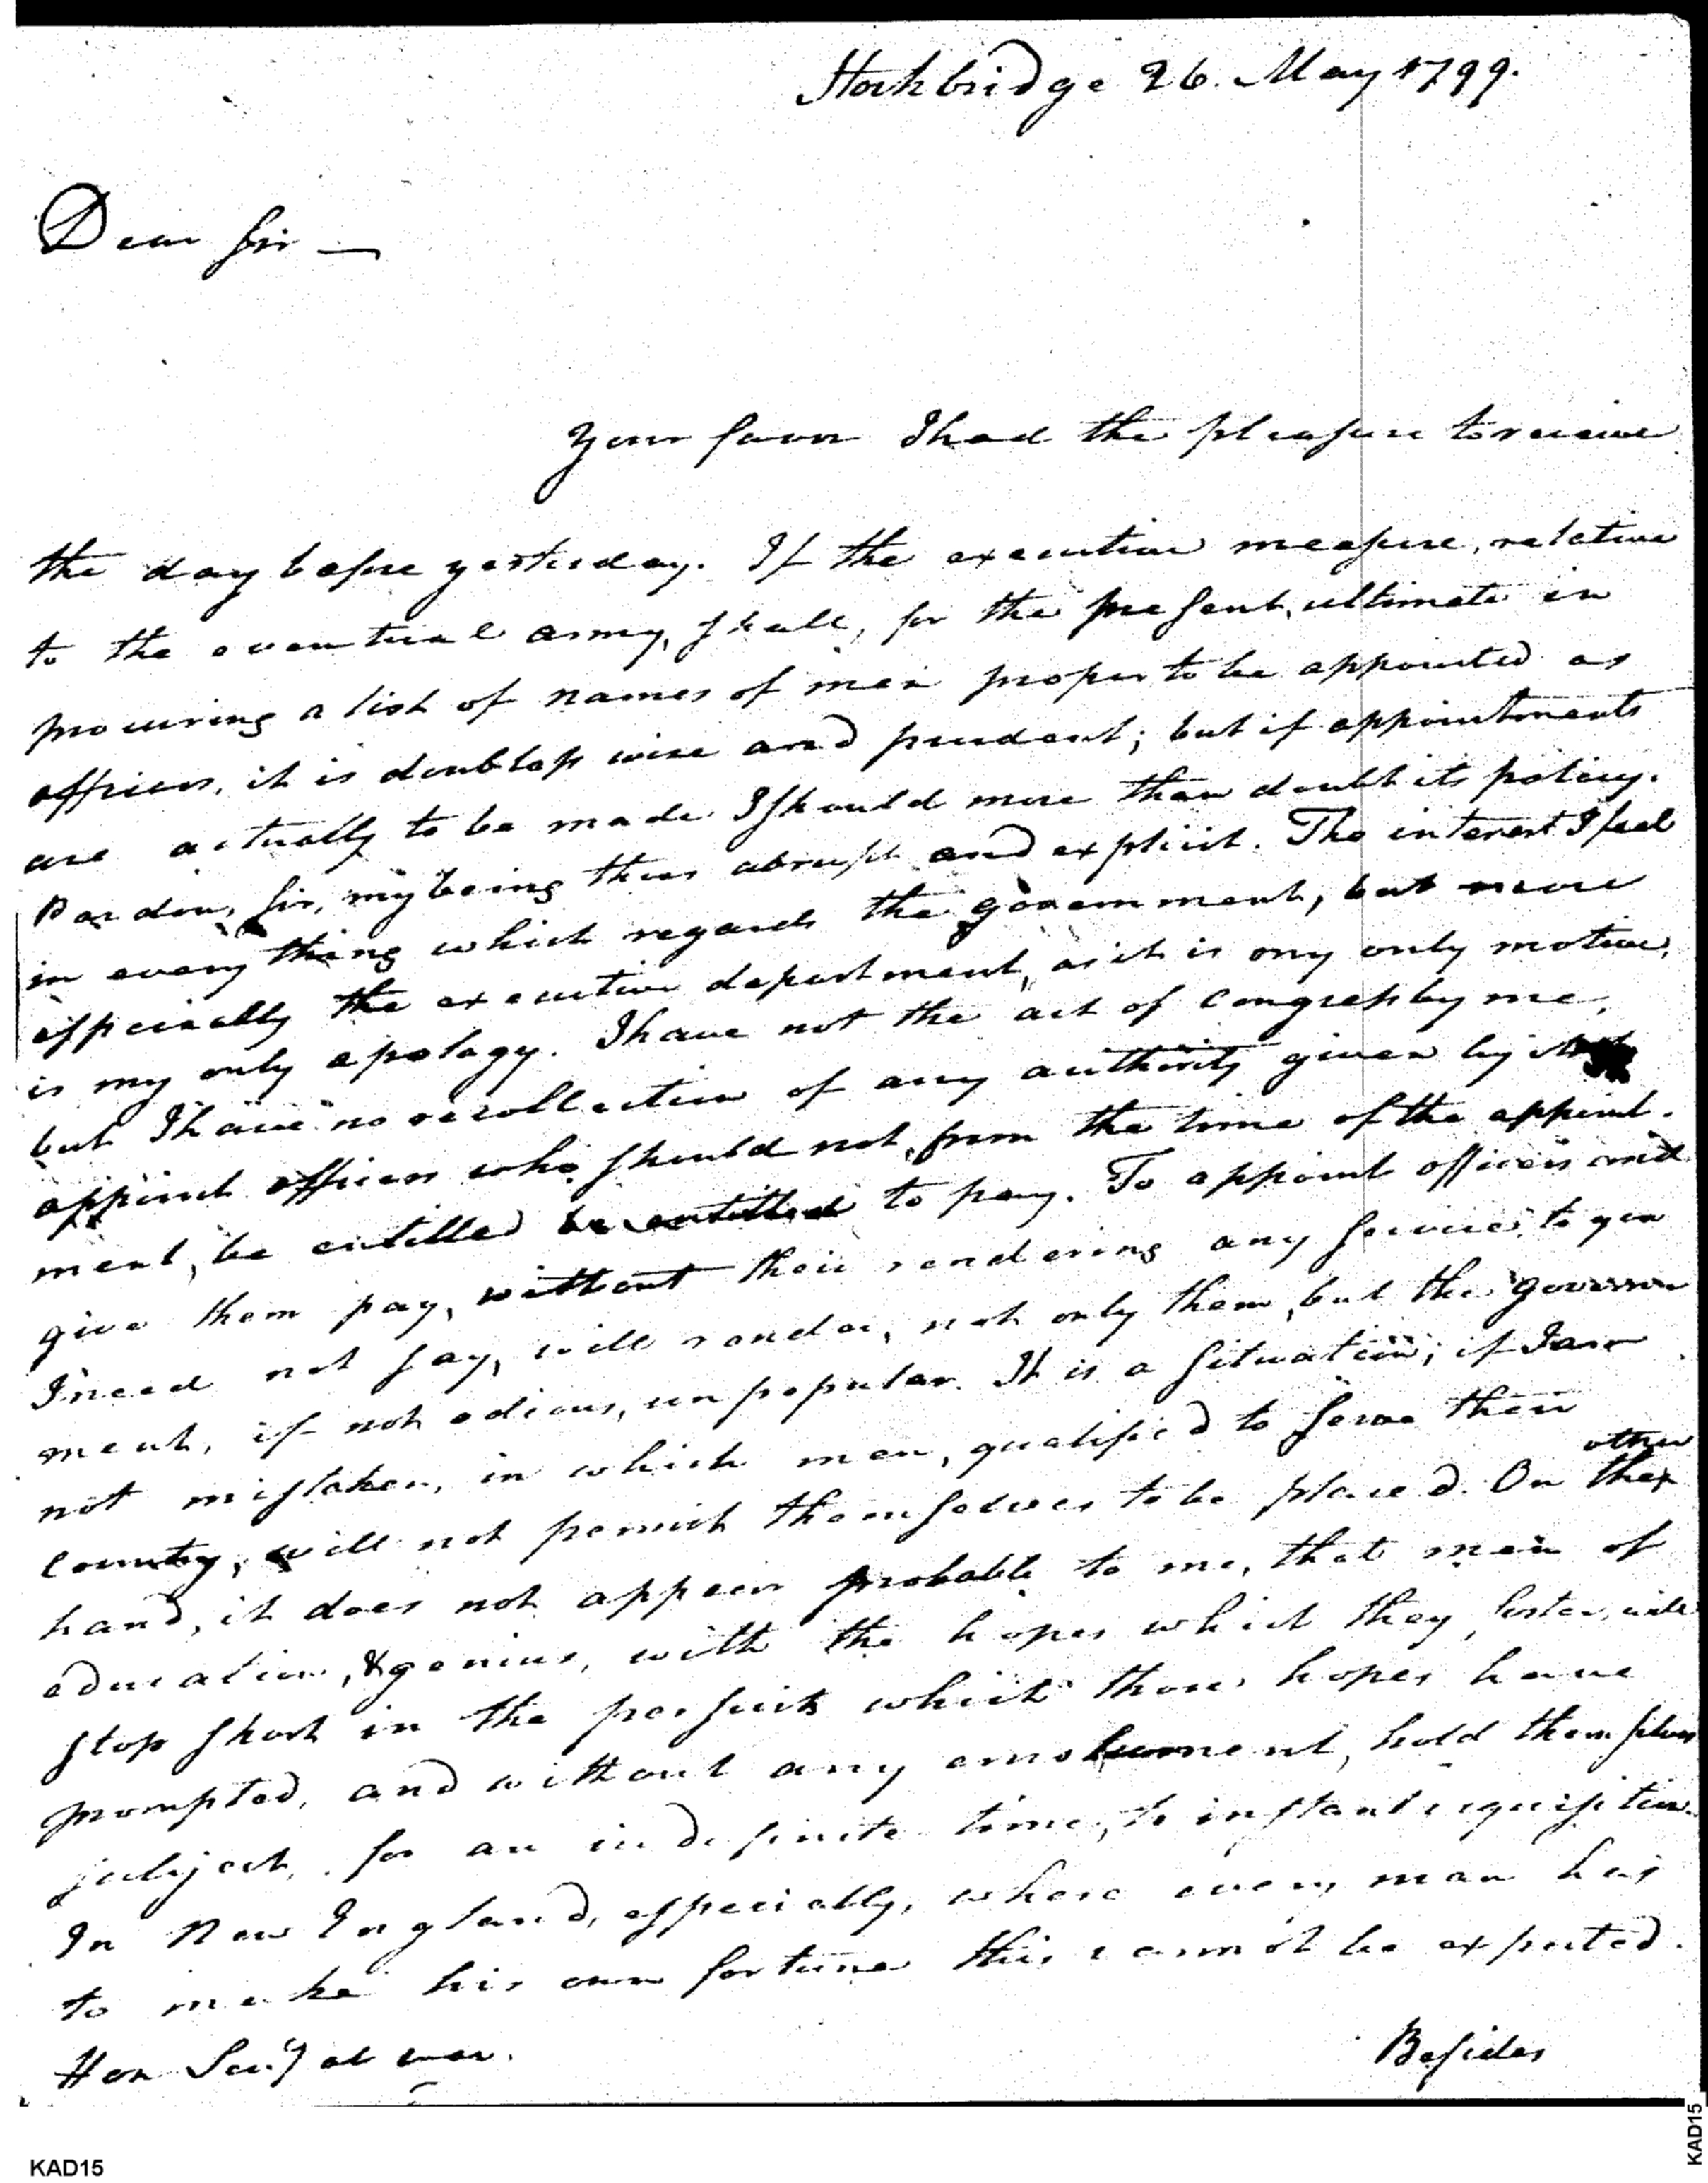 Stockbridge 26. May 1799.
Dear Sir —
Your favor I had the pleasure to receive
the day before yesterday. If the executive measure, relative
to the eventual army, shall, for the present, ultimate in
procuring a list of names of men proper to be appointed as
officers, it is doubtless wise and prudent; but if appointments
are actually to be made I should more than doubt its policy.
Pardon, Sir, my being thus abrupt and explicit. The interest I feel
in every thing which regards the government, but more
especially the executive department, as it is my only motive,
is my only apology. I have not the act of Congress by me,
but I have no recollection of any authority given by it to
appoint officers who should not, from the time of the appoint-
ment, be entitled be entitled to pay. To appoint officers and
give them pay, without their rendering any service, to you
I need not say, will render, not only them, but the govern
ment, if not odious, unpopular. It is a situation; if I am
not mistaken, in which men, qualified to serve their
country, will not permit themselves to be placed. On the
other
hand, it does not appear probable to me, that men of
education, & genius, with the hopes which they foster, will
stop short in the persuits which those hopes have
prompted, and without any emolument, hold themselves
subject, for an indefinite time, to instant requisition.
In New England, especially, where every man has
to make his own fortune this cannot be expected.
Hon Secy at war.
Besides
KAD15
KAD15